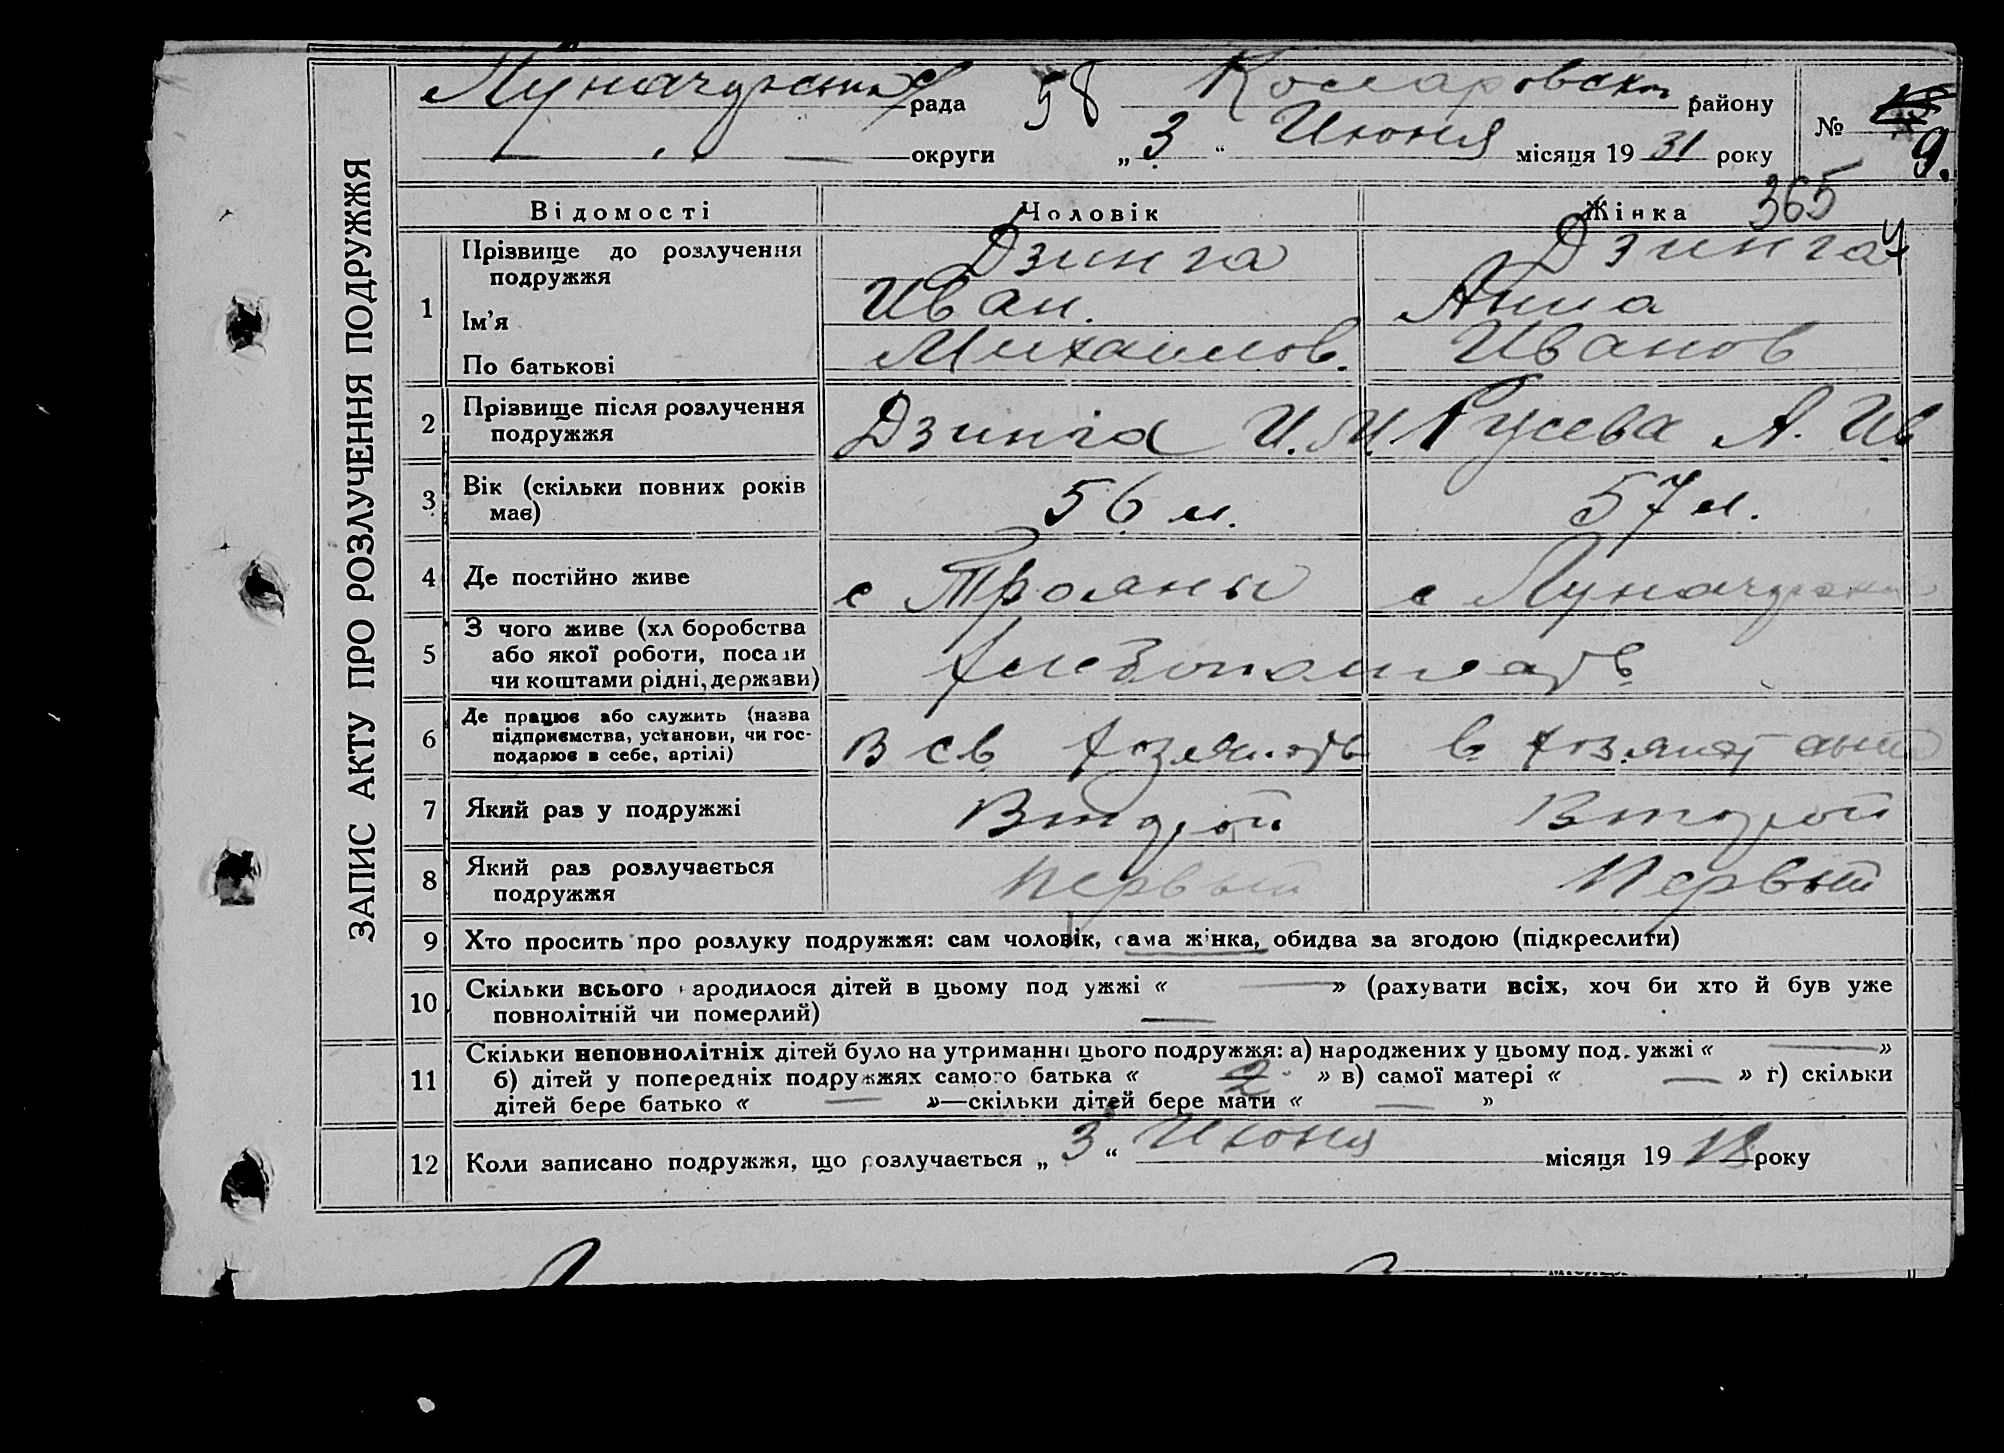 ЗАПИС АКТУ ПРО РОЗЛУЧЕННЯ ПОДРУЖЖЯ
рада 58 району
округи „ 3 “ Июня місяця 19 31 року
№ 9.
365
Відомості Чоловік Жінка
1 Прізвище до розлучення подружжя Дзинга Дзинга
Ім’я Иван. Анна
По батькові Михаилов. Иванов
2 Прізвище після розлучення подружжя Дзинга И. М. Гусева А. Ив
3 Вік (скільки повних років має) 56 л. 57 л.
4 Де постійно живе с Трояны с
5 З чого живе (хл боробства або якої роботи, посади чи коштами рідні, держави) хлебопашеств
6 Де працює або служить (назва підприємства, установи, чи господарює в себе, артілі) В св в
7 Який раз у подружжі Второй Второй
8 Який раз розлучається подружжя первый Первый
9 Хто просить про розлуку подружжя: сам чоловік, сама жінка, обидва за згодою (підкреслити)
10 Скільки всього народилося дітей в цьому под ужжі « — » (рахувати всіх, хоч би хто й був уже
повнолітній чи померлий) —
11 Скільки неповнолітніх дітей було на утриманні цього подружжя: а) народжених у цьому под. ужжі « — »
б) дітей у попередніх подружжях самого батька « 2 » в) самої матері « — » г) скільки
дітей бере батько « — »—скільки дітей бере мати « — »
12 Коли записано подружжя, що розлучається „ 3 “ Июня місяця 19 18 року